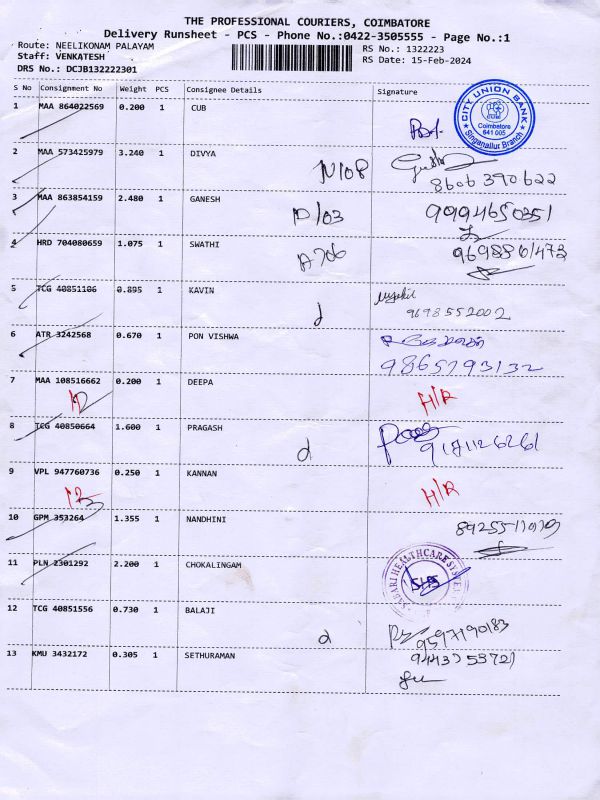 THE PROFESSIONAL COURIERS, COIMBATORE
Delivery Runsheet - PCS - Phone No.:0422-3505555 - Page No.:1
Route: NEELIKONAM PALAYAM
RS No.: 1322223
Staff: VENKATESH
RS Date: 15-Feb-2024
DRS No.: DCJB132222301
S No Consignment No Weight PCS Consignee Details Signature
1 MAA 864022569 0.200 1 CUB
CITY UNION BANK
Coimbatore
641 005
Singanallur Branch
2 MAA 573425979 3.240 1 DIVYA
N/08
8606390622
3 MAA 863854159 2.480 1 GANESH
D/03 9994650351
4 HRD 704080659 1.075 1 SWATHI
A706 9698861473
5 TCG 40851106 0.895 1 KAVIN
d 9698552002
6 ATR 3242568 0.670 1 PON VISHWA
9865793132
7 MAA 108516662 0.200 1 DEEPA
H/R
8 TCG 40850664 1.600 1 PRAGASH
d
9 VPL 947760736 0.250 1 KANNAN
H/R
10 GPM 353264 1.355 1 NANDHINI
11 PLN 2301292 2.200 1 CHOKALINGAM
SABARI HEALTHCARE SYSTEMS
SHS
12 TCG 40851556 0.730 1 BALAJI
d 9597190183
13 KMU 3432172 0.305 1 SETHURAMAN
9443753721